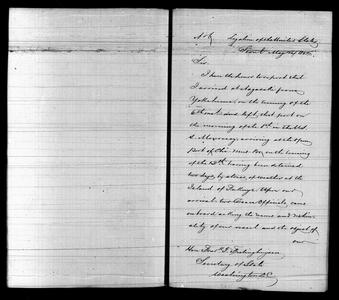 No 4. Legation of the United States
Seoul May 14 1883.
Sir.
I have the honor to report that
I arrived at Nagasaki from
Yokohama on the evening of the
6th inst. and left that port on
the morning of the 8th in the U.S.
S. Monocacy, arriving at the open
port of Che mul Po, on the evening
of the 12th having been detained
two days by stress of weather at the
Island of
Upon our
arrival two Corean Officials came
on board asking the name and nation-
ality of our vessel and the object of
our
Hon. Fredk. T. Frelinghuysen
Secretary of State
Washington D.C.